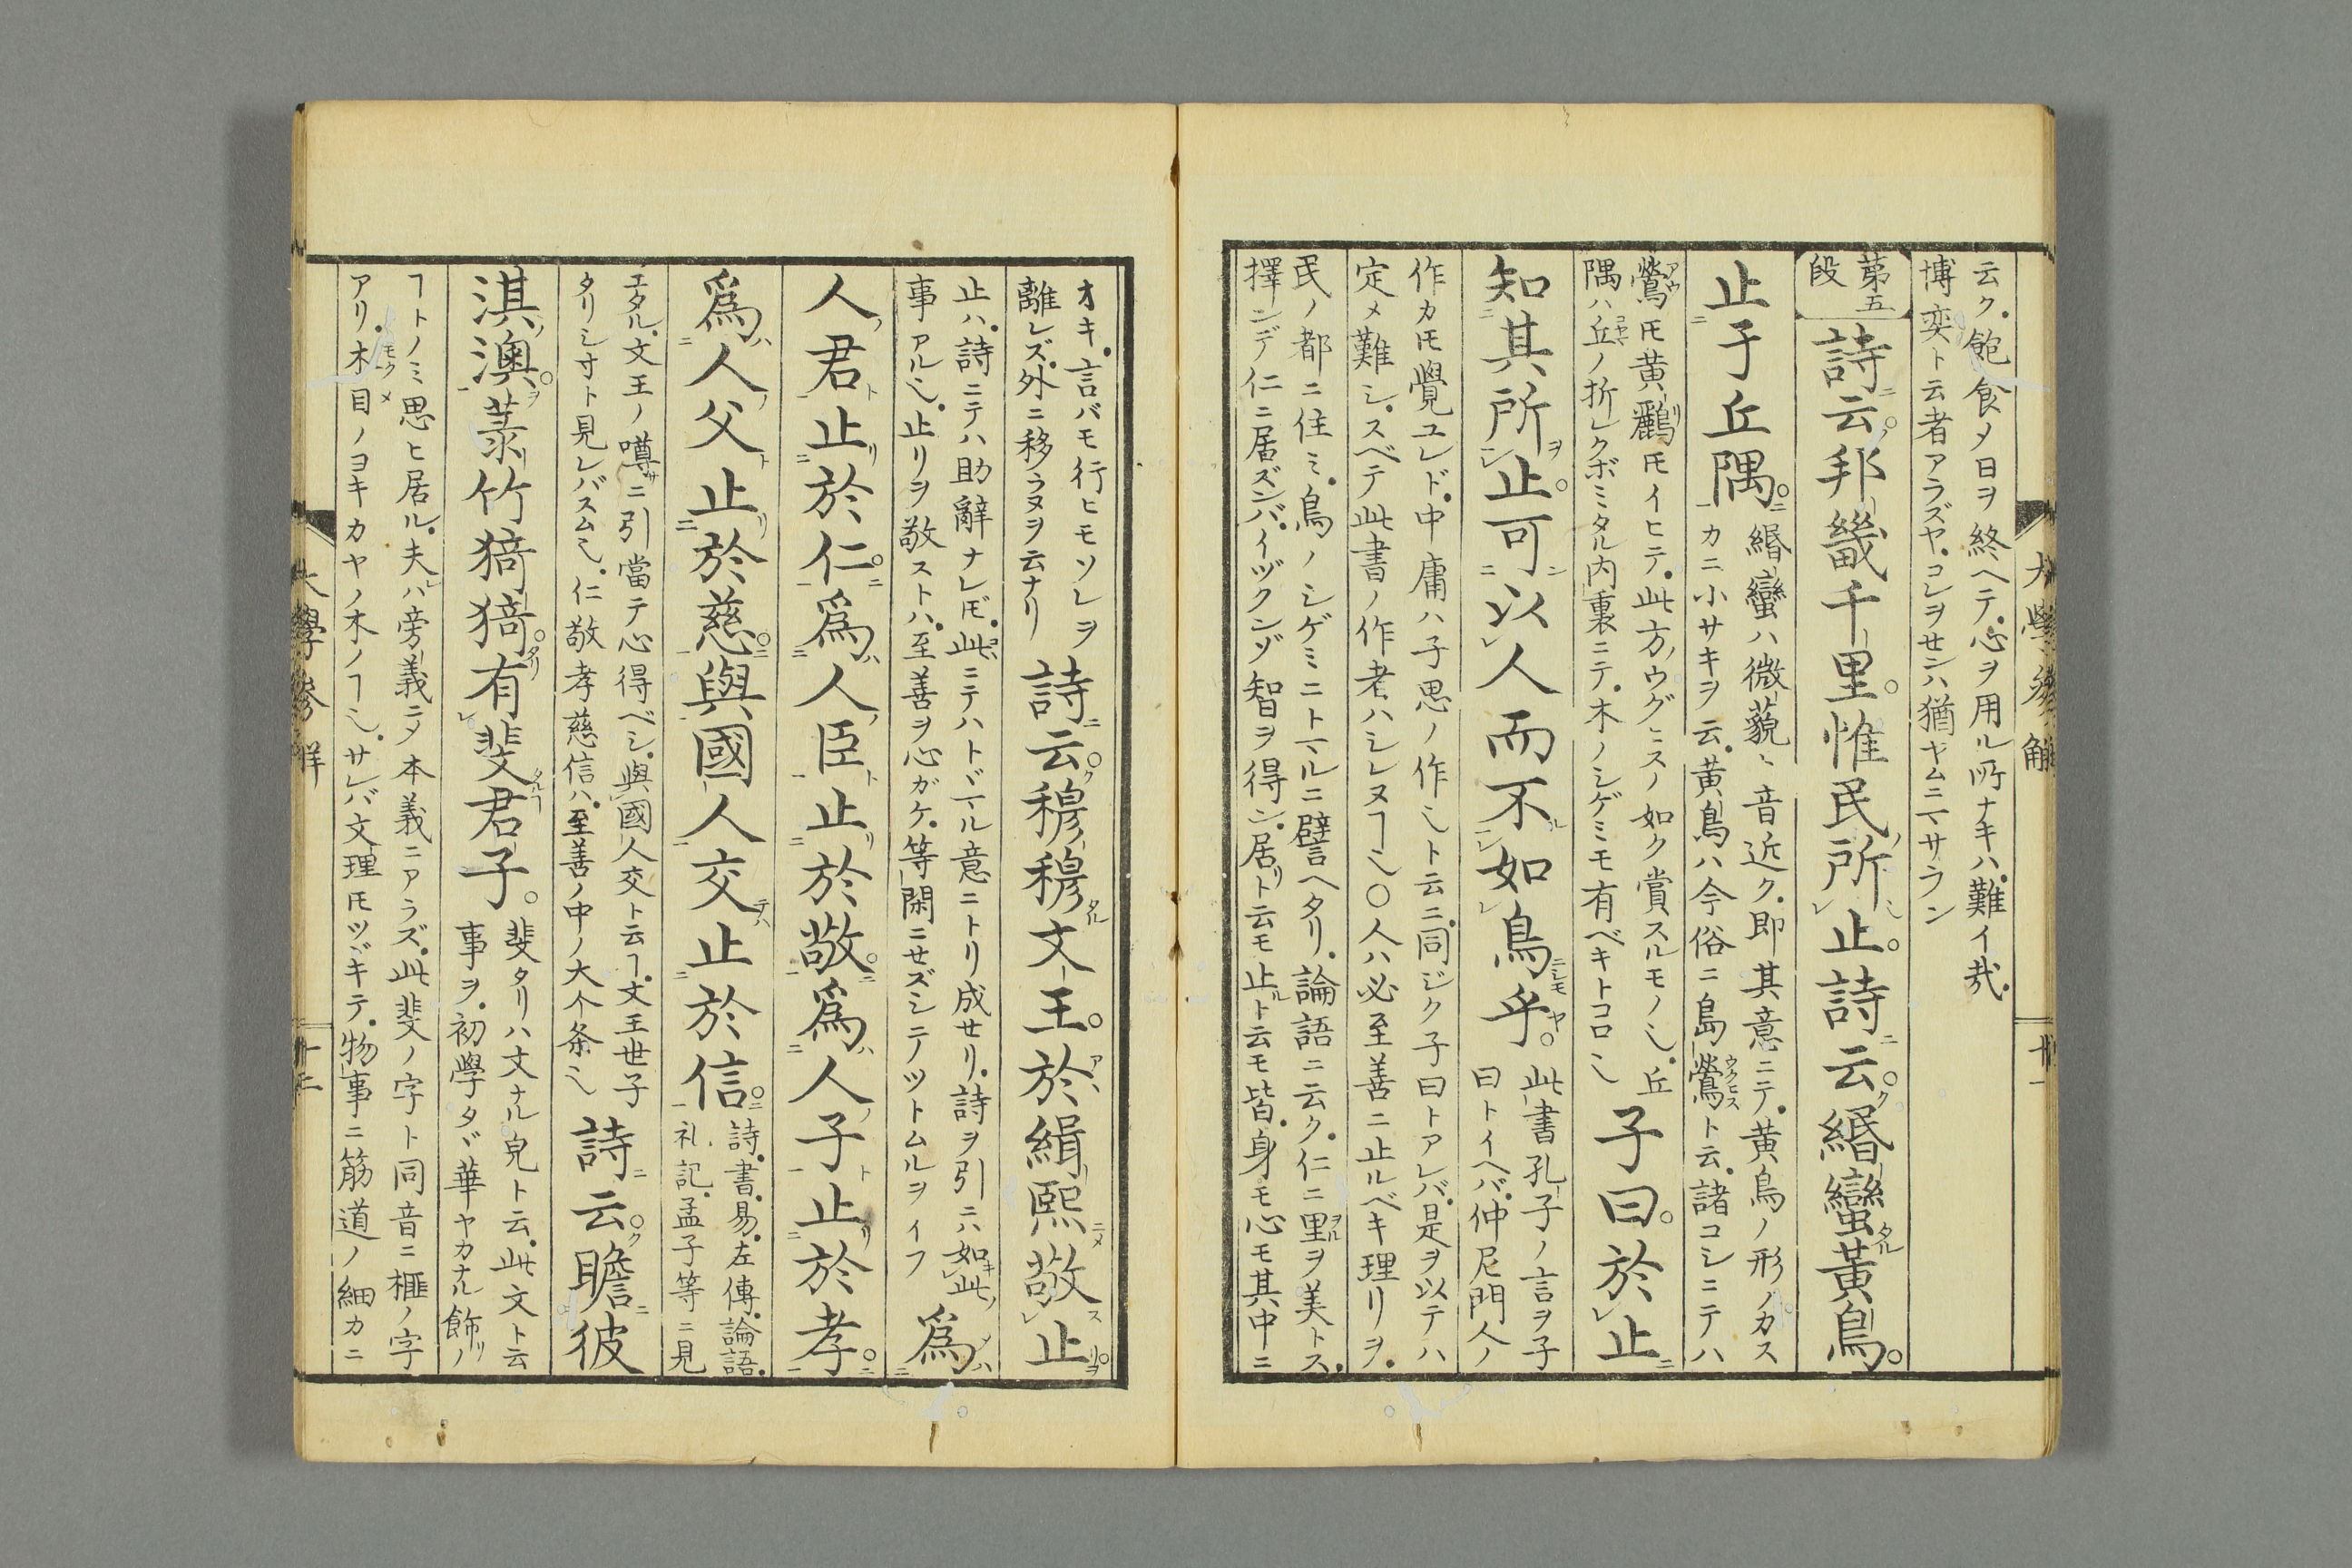 云ク.飽食メ日ヲ終ヘテ.心ヲ用ル所ナキハ.難イ哉.
博奕ト云者アラズヤ.コレヲセンハ猶ヤムニマサラン
第五段
詩云邦畿千里惟民所止詩云緡蠻黃鳥
止于丘隅
緡蠻ハ微藐ミ音近ク.即其意ニテ.黄鳥ノ形ノカス
カニ小サキヲ云.黄鳥ハ今俗ニ島鶯ト云.諸コシニテハ
鶯モ黄鸝モイヒテ.此方ノウグヒスノ如ク賞スルモノ也.丘
隅ハ丘ノ折レクボミタル内裏ニテ.木ノシゲミモ有ベキトコロ也
子曰於止
知其所止可以人而不如鳥乎
此書孔子ノ言ヲ子
曰トイヘバ.仲尼門人ノ
作カモ覺ユレド.中庸ハ子思ノ作也ト云ニ.同ジク子曰トアレバ.是ヲ以テハ
定メ難シ.スベテ此書ノ作者ハシレヌヿ也○人ハ必至善ニ止ルベキ理リヲ.
民ノ都ニ住ミ.鳥ノシゲミニトマルニ譬ヘタリ.論語ニ云ク.仁ニ里ヲ美トス.
擇ンデ仁ニ居ズンバ.イヅクンゾ智ヲ得ン.居リト云モ止ルト云モ皆.身モ心モ其中ニ
大學參解
十一
オキ.言バモ行ヒモソレヲ
離レズ.外ニ移ラヌヲ云ナリ
詩云穆穆文王於緝熙敬止
止ハ.詩ニテハ助辭ナレドモ.此ニテハトヾマル意ニトリ成セリ.詩ヲ引ニハ如此ノ
事アル也.止リヲ敬ストハ.至善ヲ心ガケ.等閑ニセズシテツトムルヲイフ
爲
人君止於仁爲人臣止於敬爲人子止於孝
爲人父止於慈與國人交止於信
詩.書.易.左傳.論語.
礼記.孟子等ニ見
エタル.文王ノ噂ニ引當テ心得ベシ.與國人交ト云ヿ.文王世子
タリシ寸ト見レバスム也.仁敬孝慈信ハ.至善ノ中ノ大个条也
詩云瞻彼
淇澳菉竹猗猗有斐君子
斐タリハ文ナル皃ト云.此文ト云
事ヲ.初學タヾ華ヤカナル飾リノ
ヿトノミ思ヒ居ル.夫ハ旁義ニメ本義ニアラズ.此斐ノ字ト同音ニ榧ノ字
アリ.木目ノヨキカヤノ木ノヿ也.サレバ文理モツヾキテ.物事ニ筋道ノ細カニ
大學參解
十二